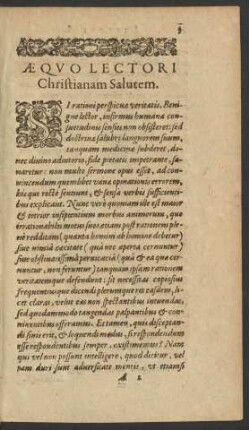 3
ÆQVO LECTORI
Christianam Salutem.
SI rationi perspicuæ veritatis, Beni-
gne lector, infirmus humanæ con-
suetudinis sensus non obsisteret; sed
doctrinæ salubri languorem suum,
tanquam medicinæ subderet, do-
nec divino adiutorio, fide pietatis impetrante, sa-
naretur: non multo sermone opus esset, ad con-
vincendum quemlibet vanæ opinationis errorem,
his qui rectè sentiunt, & sensa verbis sufficienti-
bus explicant. Nunc verò quoniam ille est maior
& tetrior insipientium morbus animorum, quo
irrationabiles motus suos etiam post rationem ple-
nè redditam (quanta homini ab homine debetur)
sive nimia cæcitate (quâ nec aperta cernuntur)
sive obstinatissima pervicaciâ (quâ & ea quæ cer-
nuntur, non feruntur) tanquam ipsam rationem
veritatemque defendunt: fit necessitas copiosius
frequentiusque dicendi plerumque res easdem, li-
cet claras, velut eas non spectantibus intuendas,
sed quodammodo tangendas palpantibus & con-
niventibus offeramus. Et tamen, quis disceptan-
di finis erit, & loquendi modus, si respondendum
esse respondentibus semper, existimemus? Nam
qui vel non possunt intelligere, quod dicitur, vel
tam duri sunt adversitate mentis, vt etiamsi
A 2